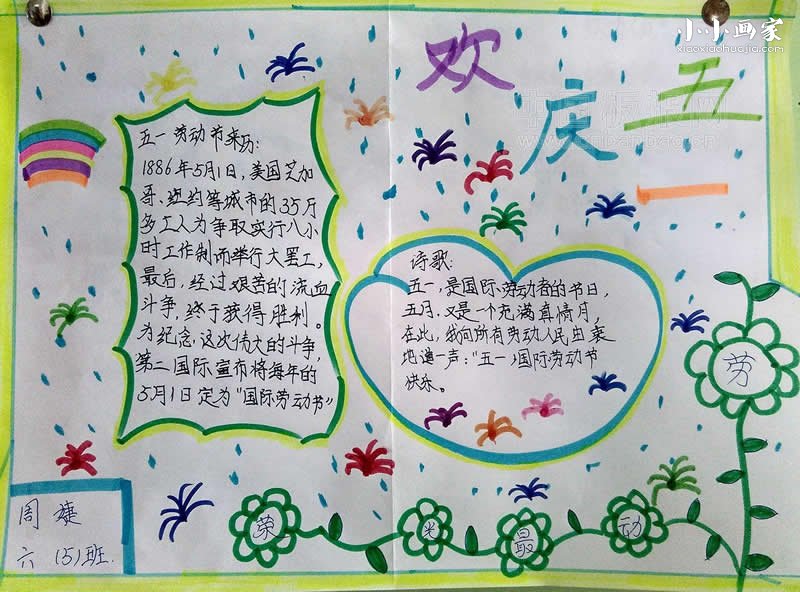 小小画家
xiaoxiaohuajia.com
欢庆五一
五一劳动节来历:
1886年5月1日,美国芝加
哥、纽约等城市的35万
多工人为争取实行八小
时工作制而举行大罢工,
最后,经过艰苦的流血
斗争,终于获得胜利。
为纪念这次伟大的斗争,
第二国际宣布将每年的
5月1日定为“国际劳动节”
诗歌:
五一,是国际劳动者的节日,
五月,又是一个充满真情月,
在此,我向所有劳动人民由衷
地道一声:“五一”国际劳动节
快乐。
劳动最光荣
周婕
六(5)班.